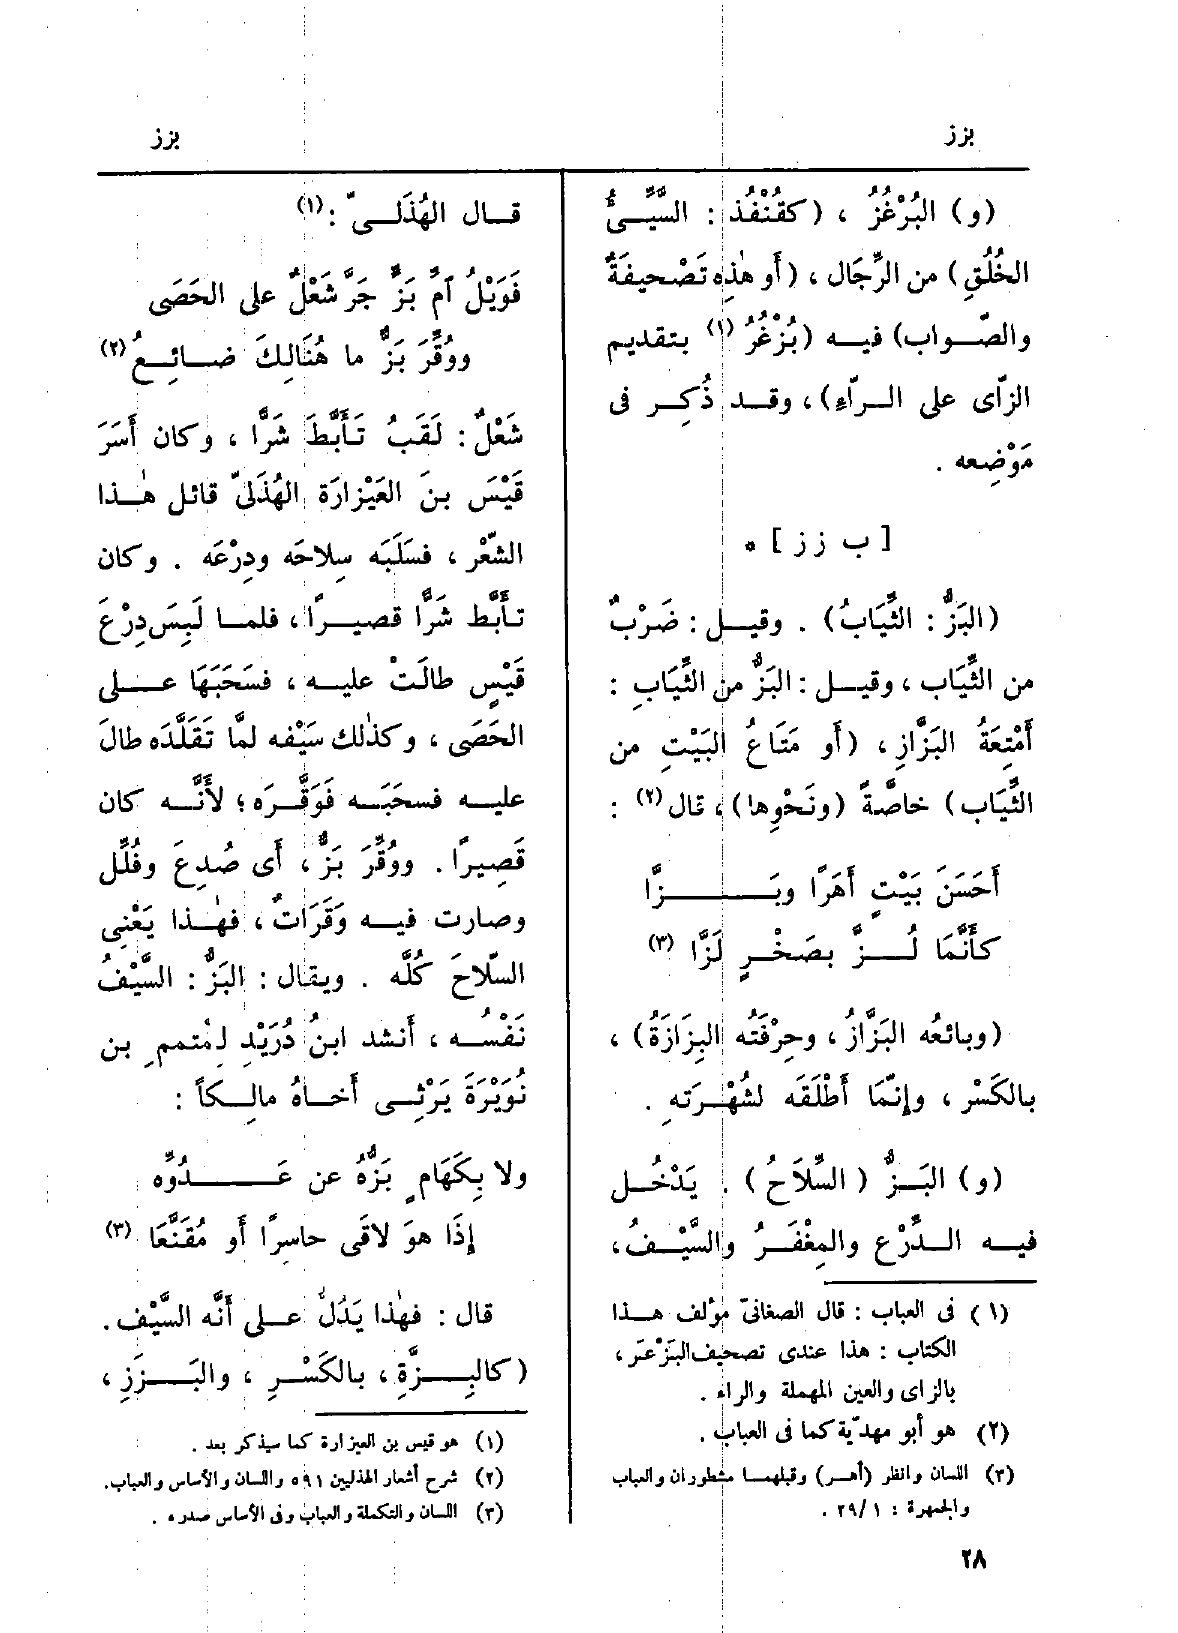 بزز
بزز
(و) البُرْغُزُ ، (كقُنْفُذ : السَّيِّئُ
الخُلُقِ) من الرِّجَال ، (أَو هٰذِه تَصْحيفَةٌ
والصّواب) فيه (بُزْغُرُ (١) بتقديم
الزّاى على الرّاءِ)، وقد ذُكِر فى
مَوْضِعه .
[ ب زز ] *
(البَزُّ : الثِّيَابُ) . وقيل : ضَرْبٌ
من الثِّيَاب ، وقيل : البَزُّ من الثِّيَابِ :
أَمْتِعَةُ البَزّازِ، (أَو مَتَاعُ البَيْتِ من
الثِّيَاب) خاصَّةً (ونَحْوِها)، قال (٢) :
أَحَسَنَ بَيْتٍ أَهَرًا وبَزًّا
كأَنَّمَا لُزَّ بصَخْرٍ لَزَّا (٣)
(وبائعُه البَزَّازُ ، وحِرْفَتُه البِزَازَةُ) ،
بالكَسْر ، وإِنّمَا أَطْلَقَه لشُهْرَتهِ .
(و) البَزُّ (السِّلَاحُ) . يَدْخُل
فيه الدِّرْع والمِغْفَرُ والسَّيْفُ،
(١) فى العباب : قال الصغانىّ مؤلف هذا
الكتاب : هذا عندى تصحيف البَزْعَر ،
بالزاى والعين المهملة والراء .
(٢) هو أبو مهديّة كما فى العباب .
(٣) اللسان وانظر (أهر) وقبلهما مشطوران والعباب
والجمهرة : ٢٩/١ .
٢٨
قال الهُذَلىّ : (١)
فَوَيْلُ آمِّ بَزٍّ جَرَّ شَعْلٌ على الحَصَى
ووُقِّرَ بَزٌّ ما هُنَالِكَ ضَائِعُ (٢)
شَعْلٌ : لَقَبُ تَأَبَّطَ شَرًّا ، وكان أَسَرَ
قَيْسَ بنَ العَيْزارَة الهُذَلىّ قائل هٰذا
الشّعْر ، فسَلَبَه سِلاحَه ودِرْعَه . وكان
تأَبَّط شَرًّا قصيرًا ، فلما لَبِسَ دِرْعَ
قَيْسٍ طالَتْ عليه ، فسَحَبَهَا على
الحَصَى ، وكذٰلك سَيْفه لمَّا تَقَلَّدَه طالَ
عليه فسحَبَه فوَقَّرَه ؛ لأَنَّه كان
قَصِيرًا . ووُقِّرَ بَزٌّ ، أَى صُدِعَ وفُلِّل
وصارت فيه وَقَرَاتٌ ، فهٰذا يَعْنِى
السّلاحَ كُلَّه . ويقال : البَزُّ : السَّيْفُ
نَفْسُه ، أَنشد ابنُ دُرَيْدٍ لمُتممِ بن
نُوَيْرَةَ يَرْثِى أَخاهُ مالِكاً :
ولا بِكَهَامٍ بَزُّهُ عن عَدُوِّه
إِذَا هوَ لاقَى حاسِرًا أَو مُقَنَّعَا (٣)
قال : فهٰذا يَدُلُّ على أَنَّه السَّيْف .
(كالبِزَّةِ ، بالكَسْرِ ، والبَزَزِ ،
(١) هو قيس بن العيزارة كما سيذكر بعد .
(٢) شرح أشعار الهذليين ٥٩١ واللسان والأساس والعباب.
(٣) اللسان والتكملة والعباب وفى الأساس صدره .